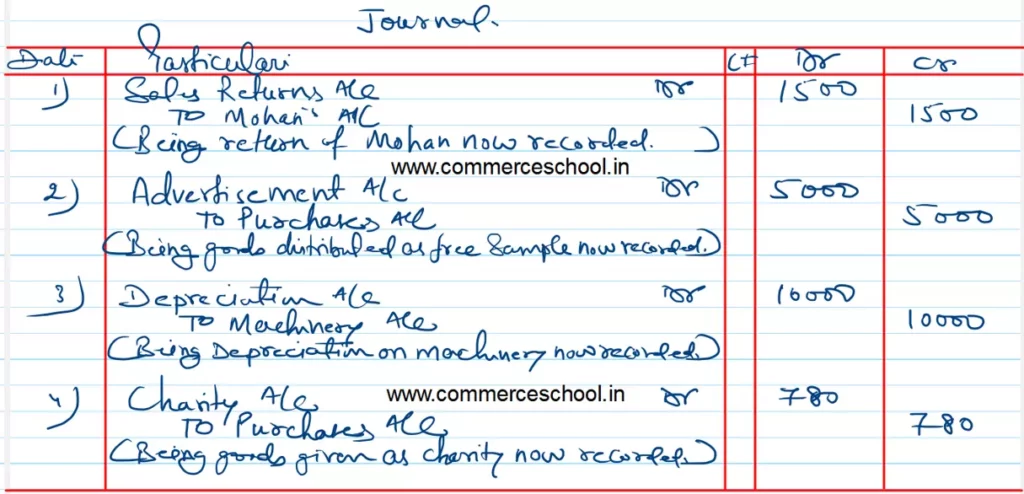 Journal.
Date Particulars LF Dr Cr
1) Sales Returns A/c Dr 1500
To Mohan's A/C 1500
(Being return of Mohan now recorded.)
www.commerceschool.in
2) Advertisement A/c Dr 5000
To Purchases A/c 5000
(Being goods distributed as free Sample now recorded.)
3) Depreciation A/c Dr 10000
To Machinery A/c 10000
(Being Depreciation on machinery now recorded)
4) Charity A/c www.commerceschool.in Dr 780
To Purchases A/c 780
(Being goods given as charity now recorded.)